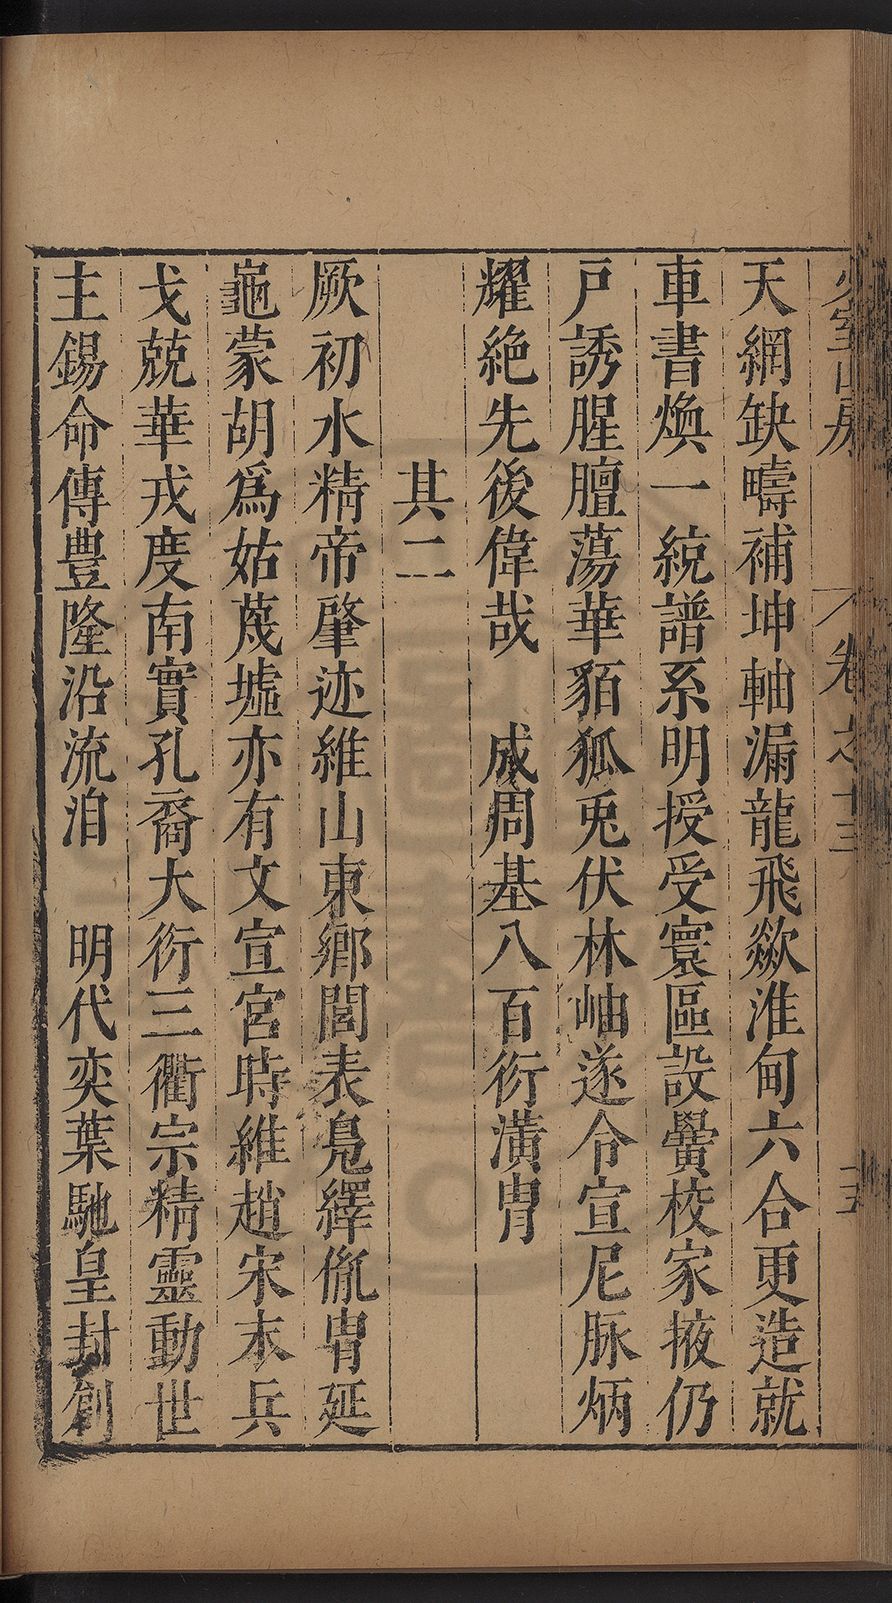 少室山房 卷之十三 十五
天網缺疇補坤軸漏龍飛歘淮甸六合更造就
車書煥一統譜系明授受寰區設黌校家掖仍
戸誘腥膻蕩華貊狐兎伏林岫遂令宣尼脉炳
耀絶先後偉哉　成周基八百衍潢胄
其二
厥初水精帝肇迹維山東鄉閭表鳬繹胤胄延
龜蒙胡爲姑蔑墟亦有文宣宮時維趙宋末兵
戈兢華戎度南實孔裔大衍三衢宗精靈動世
主錫命傳豊隆沿流洎　明代奕葉馳皇封創